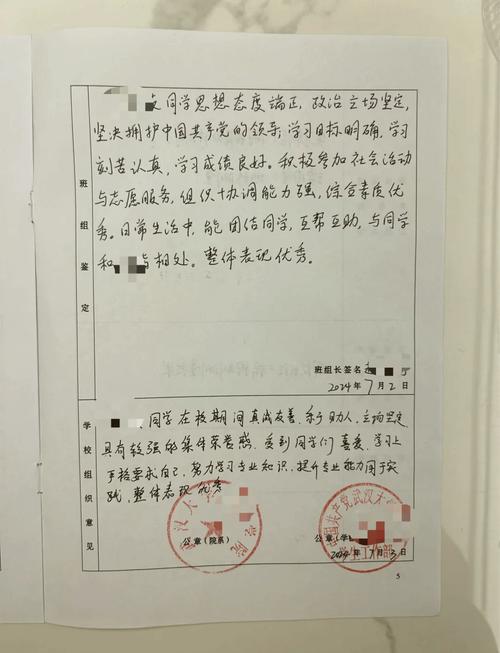 班组鉴定
同学思想态度端正，政治立场坚定，
坚决拥护中国共产党的领导，学习目标明确，学习
刻苦认真，学习成绩良好。积极参加社会活动
与志愿服务，组织协调能力强，综合素质优
秀。日常生活中，能团结同学，互帮互助，与同学
和 相处。整体表现优秀。
班组长签名
2024年7月2日
学校组织意见
同学在校期间真诚友善，乐于助人，立场坚定
具有较强的集体荣誉感，受到同学们喜爱，学习上
严格要求自己，努力学习专业知识，提升专业能力用于实
践，整体表现优秀
武汉大 学院
中国共产党武汉大
学生工作部
公章（院系）
公章（学
2024年7月3日
5